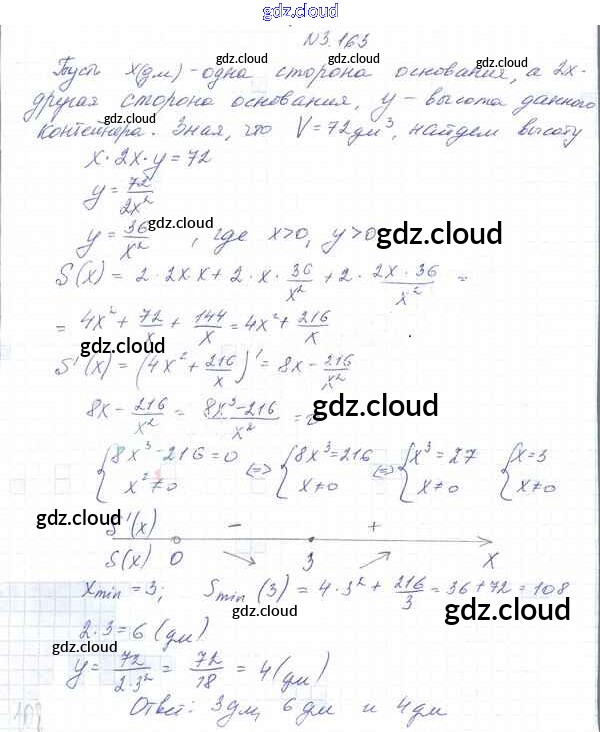 gdz.cloud
N3.163
gdz.cloud gdz.cloud
Пусть x(дм) - одна сторона основания, а 2x-
другая сторона основания, y - высота данного
gdz.cloud
контейнера. Зная, что V = 72дм³, найдем высоту
x · 2x · y = 72
gdz.cloud
y = 72/2x²
gdz.cloud
y = 36/x² , где x>0, y>0
gdz.cloud
S(x) = 2 · 2x · x + 2 · x · 36/x² + 2 · 2x · 36/x² =
= 4x² + 72/x + 144/x = 4x² + 216/x
gdz.cloud
S'(x) = (4x² + 216/x)' = 8x - 216/x²
8x - 216/x² = 8x³-216/x² = 0
gdz.cloud
{ 8x³ - 216 = 0 <=> { 8x³ = 216 <=> { x³ = 27 { x = 3
x² ≠ 0 x ≠ 0 x ≠ 0 x ≠ 0
gdz.cloud gdz.cloud
gdz.cloud
S'(x) - +
S(x) 0 3 x
gdz.cloud
xmin = 3; Smin (3) = 4 · 3² + 216/3 = 36 + 72 = 108
gdz.cloud gdz.cloud
2 · 3 = 6 (дм)
gdz.cloud
y = 72/2·3² = 72/18 = 4 (дм)
Ответ: 3дм, 6дм и 4дм
gdz.cloud